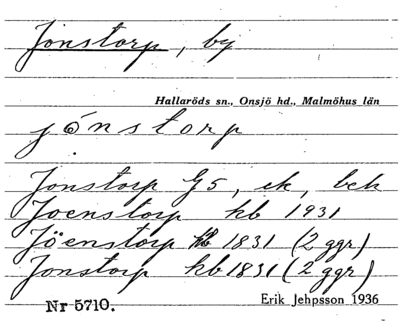 Jonstorp, by
Hallaröds sn., Onsjö hd., Malmöhus län
jónstorp
Jonstorp G5, ek, bek
Joenstorp kb 1931
Jöenstorp kb 1831 (2 ggr)
Jonstorp kb 1831 (2 ggr)
Nr 5710. Erik Jehpsson 1936